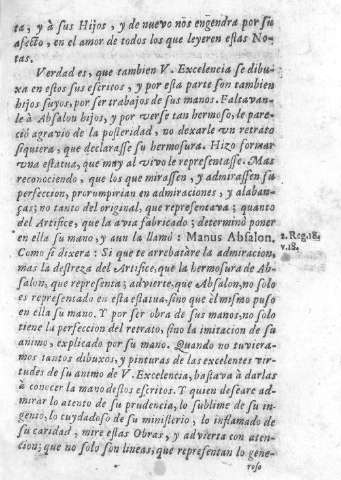 ta, y à sus Hijos, y de nuevo nos engendra por su
afecto, en el amor de todos los que leyeren estas No-
tas.
Verdad es, que tambien V. Excelencia se dibu-
xa en estos sus escritos, y por esta parte son tambien
hijos suyos, por ser trabajos de sus manos. Faltavan-
le à Absalon hijos, y por verse tan hermoso, le pare-
ciò agravio de la posteridad, no dexarle vn retrato
siquiera, que declarasse su hermosura. Hizo formar
vna estatua, que muy al vivo le representasse. Mas
reconociendo, que los que mirassen, y admirassen su
perfeccion, prorumpirian en admiraciones, y alaban-
ças; no tanto del original, que representava; quanto
del Artifice, que la avia fabricado; determinò poner
en ella su mano, y aun la llamò: Manus Absalon.
2. Reg. 18.
v. 18.
Como si dixera: Si que te arrebatàre la admiracion,
mas la destreza del Artifice, que la hermosura de Ab-
salon, que representa; advierte, que Absalon, no solo
es representado en esta estatua, sino que èl mismo puso
en ella su mano. Y por ser obra de sus manos, no solo
tiene la perfeccion del retrato, sino la imitacion de su
animo, explicado por su mano. Quando no tuviera-
mos tantos dibuxos, y pinturas de las excelentes vir-
tudes de su animo de V. Excelencia, bastava à darlas
à conocer la mano destos escritos. Y quien deseare ad-
mirar lo atento de su prudencia, lo sublime de su in-
genio, lo cuydadoso de su ministerio, lo inflamado de
su caridad, mire estas Obras, y advierta con aten-
cion; que no solo son lineas, que representan lo gene-
roso